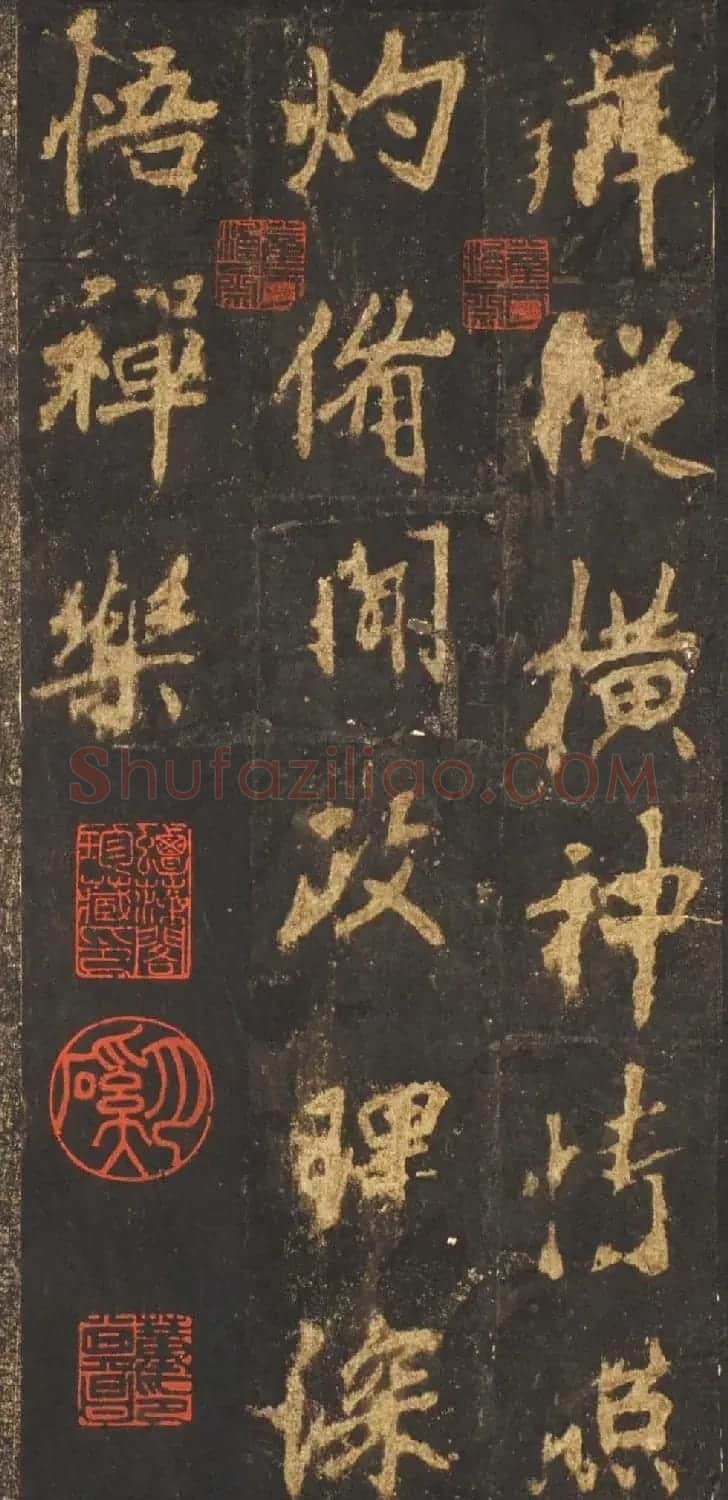 縱橫神情照
灼備聞政理深
悟禪樂
Shufaziliao.COM